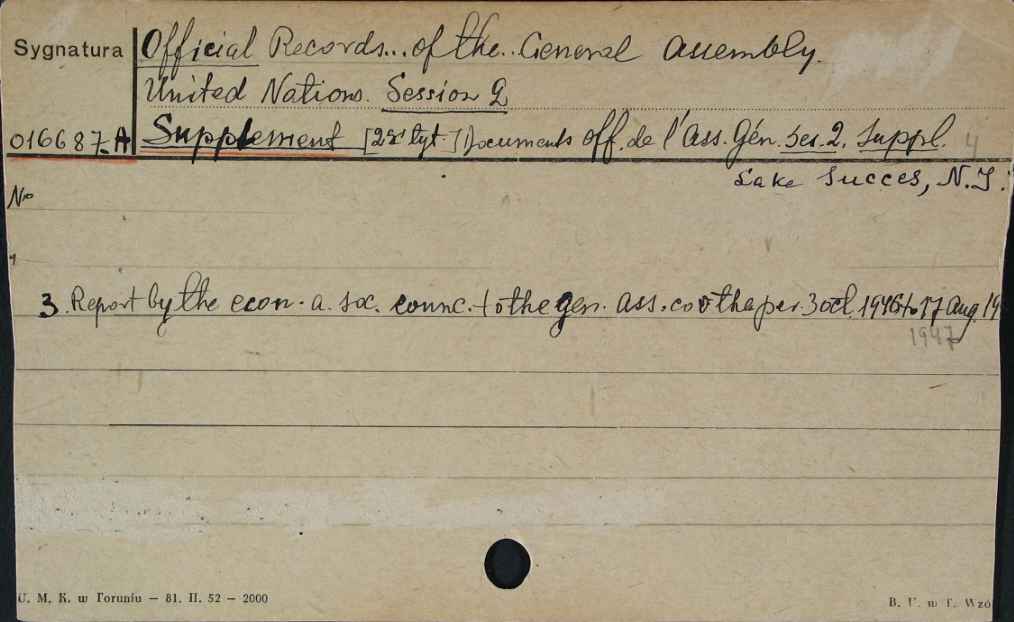 Sygnatura
Official Records... of the.. General Assembly.
United Nations. Session 2
016687-A Supplement [2gi tyt.] Documents off. de l'Ass. Gén. Ses. 2. Suppl. 4
Lake Succes, N.J.
No
3. Report by the econ. a. soc. counc. to the gen. ass. per. 3 oct. 1946 to 17 Aug. 19
1947
U. M. K. w Toruniu — 81. II. 52 — 2000
B. U. w T. Wzó